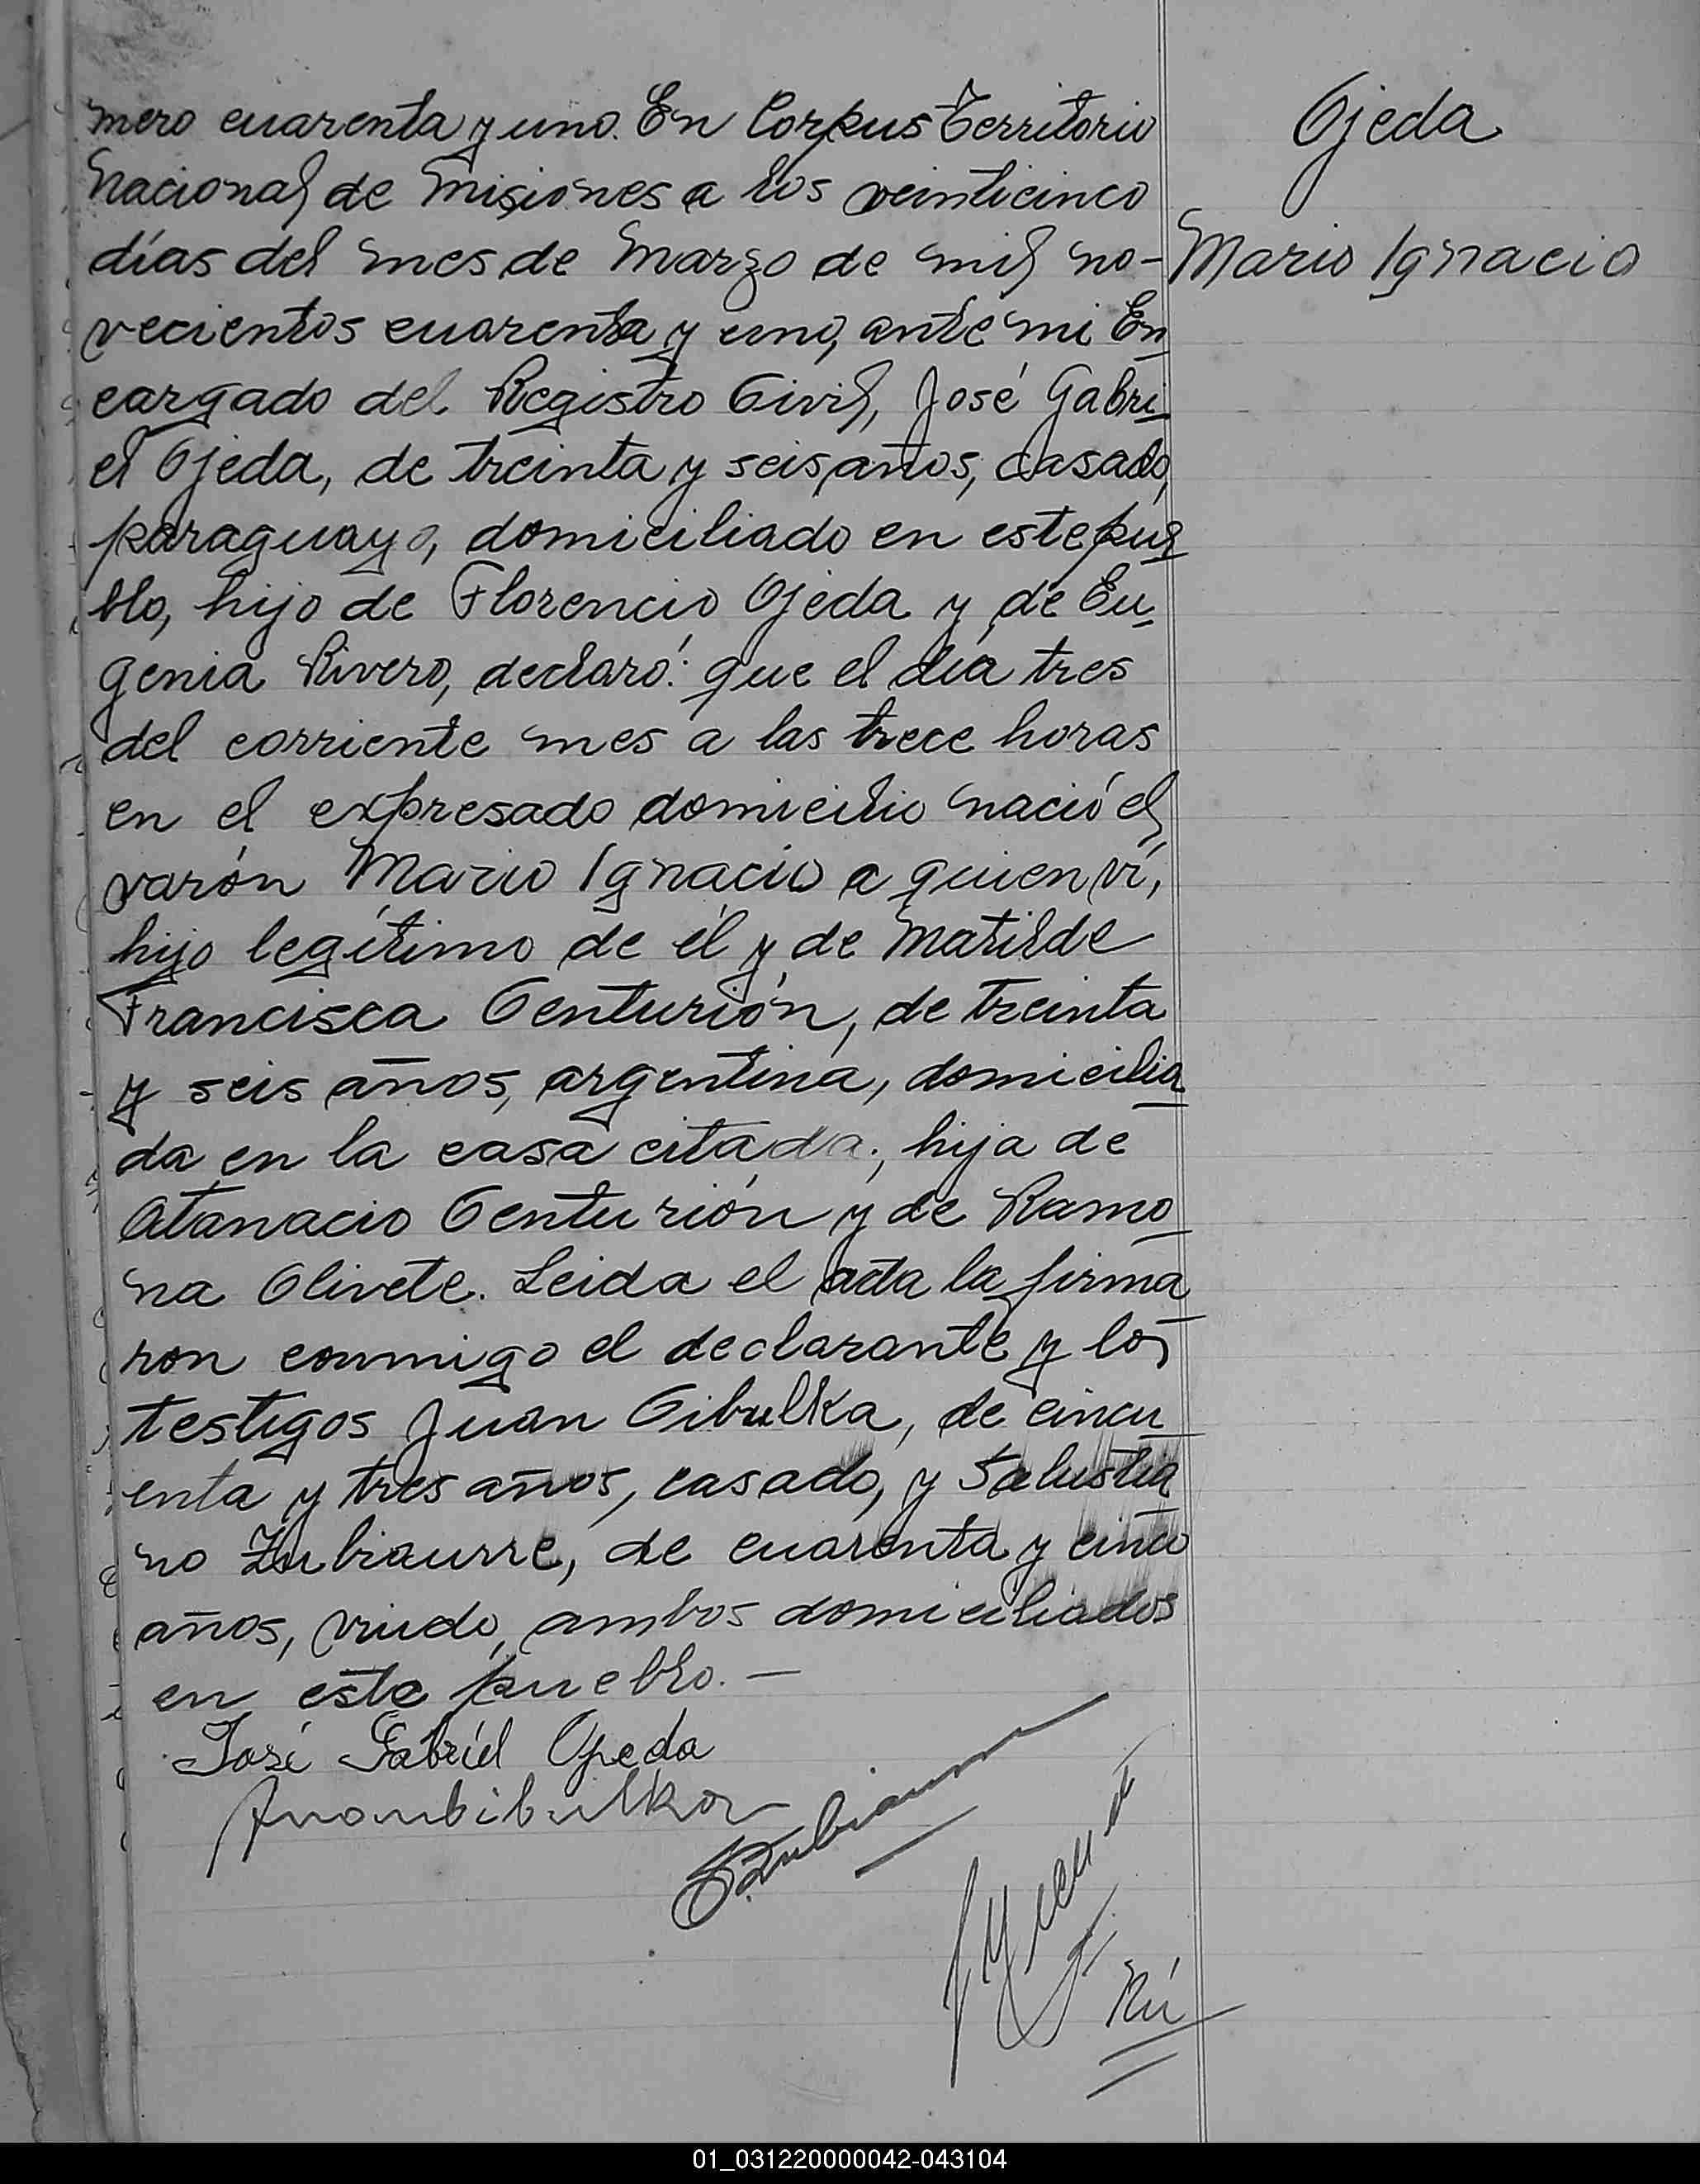 mero cuarenta y uno. En Corpus Territorio
Nacional de Misiones a los veinticinco
días del mes de Marzo de mil no-
vecientos cuarenta y uno, ante mi En
cargado del Registro Civil, José Gabri
el Ojeda, de treinta y seis años, casado,
paraguayo, domiciliado en este pue
blo, hijo de Florencio Ojeda y de Eu
genia Rivero, declaró: que el día tres
del corriente mes a las trece horas
en el expresado domicilio nació el
varón Mario Ignacio a quien ví,
hijo legítimo de él y de Matilde
Francisca Centurión, de treinta
y seis años, argentina, domicilia
da en la casa citada, hija de
Atanacio Centurión y de Ramo
na Olivete. Leida el acta la firma
ron conmigo el declarante y los
testigos Juan Cibulka, de cincu
enta y tres años, casado, y Salustia
no Zubiaurre, de cuarenta y cinco
años, viudo, ambos domiciliados
en este pueblo. —
José Gabriél Ojeda
Juan Cibulka
S. Zubiaurre
Ojeda
Mario Ignacio
01_031220000042-043104